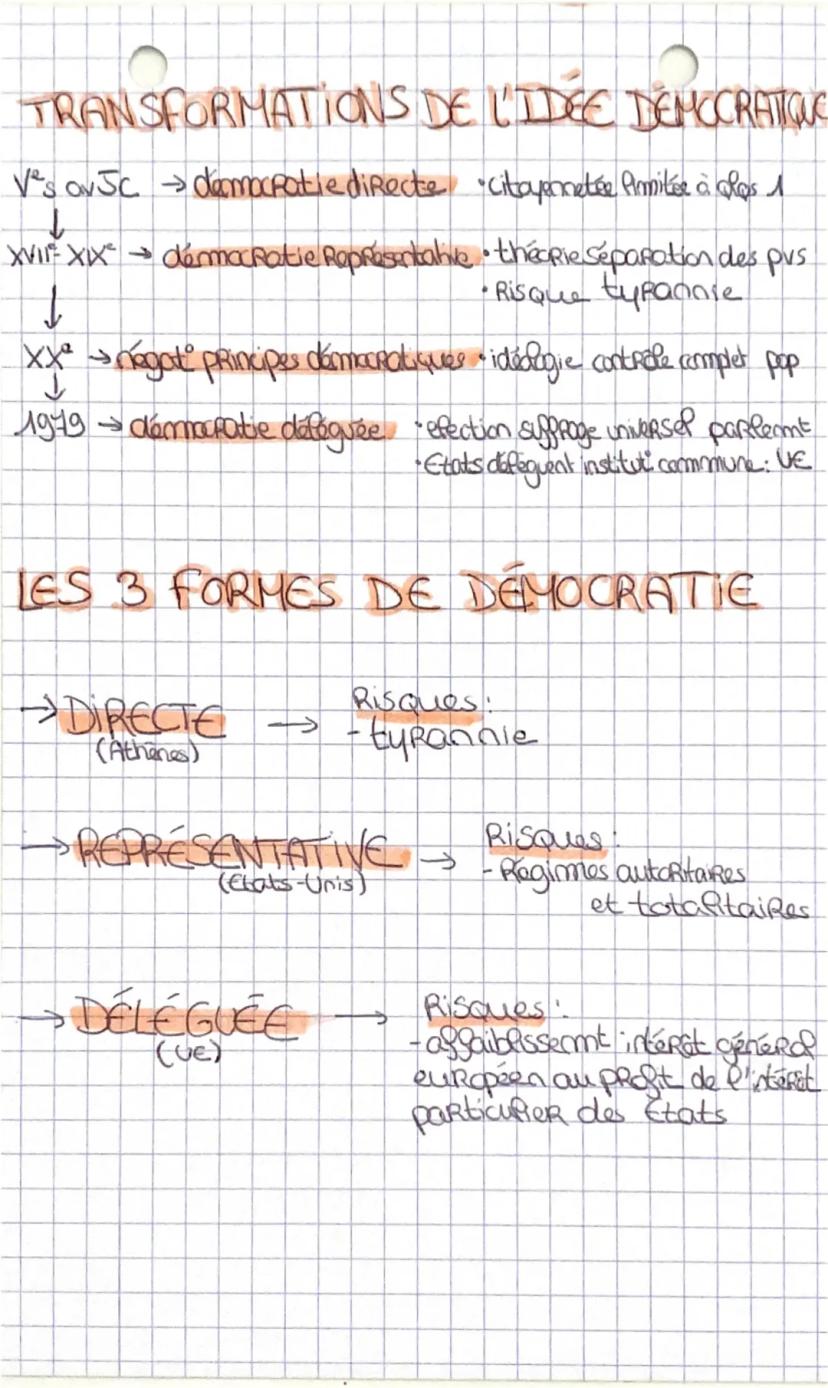 TRANSFORMATIONS DE L'IDÉE DÉMOCRATIQUE
Vᵉs av JC → démocratie directe • citoyennetée limitée à
↓
XVIIᵉ-XIXᵉ → démocratie représentative • théorie séparation des pvs
• Risque tyrannie
↓
XXᵉ → négatº principes démocratiques • idéologie contrôle complet pop
↓
1979 → démocratie déléguée • élection suffrage universel parlemnt
• États délèguent institutº commune : UE
LES 3 FORMES DE DÉMOCRATIE
→ DIRECTE → Risques :
(Athènes) - tyrannie
→ REPRÉSENTATIVE → Risques :
(États-Unis) - Régimes autoritaires
et totalitaires
→ DÉLÉGUÉE → Risques :
(UE) - affaiblissemnt intérêt général
européen au profit de l'intérêt
particulier des États